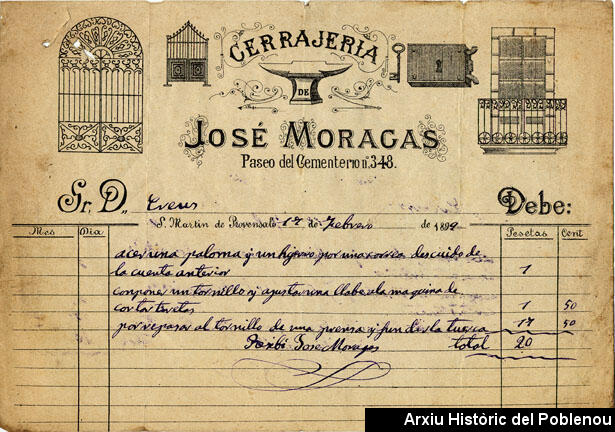 CERRAJERIA
DE
JOSÉ MORAGAS
Paseo del Cementerio nº 348.
Sr. D. Creus Debe:
S. Martin de Provensals 17 de Febrero de 1899
Mes Dia Pesetas Cent
acer una paloma y un por una correa descuido de
la cuenta anterior 1
conponer un tornillo y ajustar una llabe a la maquina de
cortar tretas 1 50
por repasar al tornillo de una prensa y fundir la tuerca 17 50
Recibi José Moragas total 20
Arxiu Històric del Poblenou